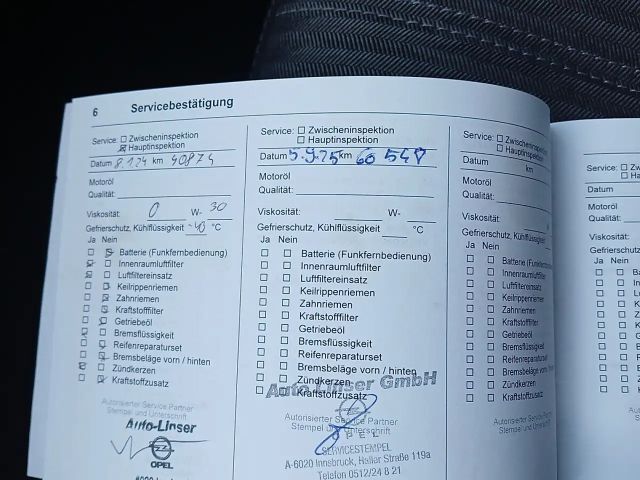 6 Servicebestätigung
Service: Zwischeninspektion
Hauptinspektion
Datum 8.1.24 km 40874
Motoröl
Qualität:
Viskosität: 0 W- 30
Gefrierschutz, Kühlflüssigkeit -40 °C
Ja Nein
Batterie (Funkfernbedienung)
Innenraumluftfilter
Luftfiltereinsatz
Keilrippenriemen
Zahnriemen
Kraftstofffilter
Getriebeöl
Bremsflüssigkeit
Reifenreparaturset
Bremsbeläge vorn / hinten
Zündkerzen
Kraftstoffzusatz
Autorisierter Service Partner
Stempel und Unterschrift
Auto-Linser
OPEL
Service: Zwischeninspektion
Hauptinspektion
Datum 5.9.25 km 60 547
Motoröl
Qualität:
Viskosität: W-
Gefrierschutz, Kühlflüssigkeit °C
Ja Nein
Batterie (Funkfernbedienung)
Innenraumluftfilter
Luftfiltereinsatz
Keilrippenriemen
Zahnriemen
Kraftstofffilter
Getriebeöl
Bremsflüssigkeit
Reifenreparaturset
Bremsbeläge vorn / hinten
Zündkerzen
Kraftstoffzusatz
Auto Linser GmbH
Autorisierter Service Partner
Stempel und
OPEL
SERVICESTEMPEL
A-6020 Innsbruck, Haller Straße 119a
Telefon 0512/24 8 21
Service: Zwischeninspektion
Hauptinspektion
Datum km
Motoröl
Qualität:
Viskosität: W-
Gefrierschutz, Kühlflüssigkeit
Ja Nein
Batterie (Funkfernbedienung)
Innenraumluftfilter
Luftfiltereinsatz
Keilrippenriemen
Zahnriemen
Kraftstofffilter
Getriebeöl
Bremsflüssigkeit
Reifenreparaturset
Bremsbeläge vorn
Zündkerzen
Kraftstoffzusatz
Autorisierter Service Partner
Stempel und Unterschrift
Service: Zw
Ha
Datum
Motoröl
Qualität:
Viskosität:
Gefrierschutz, K
Ja Nein